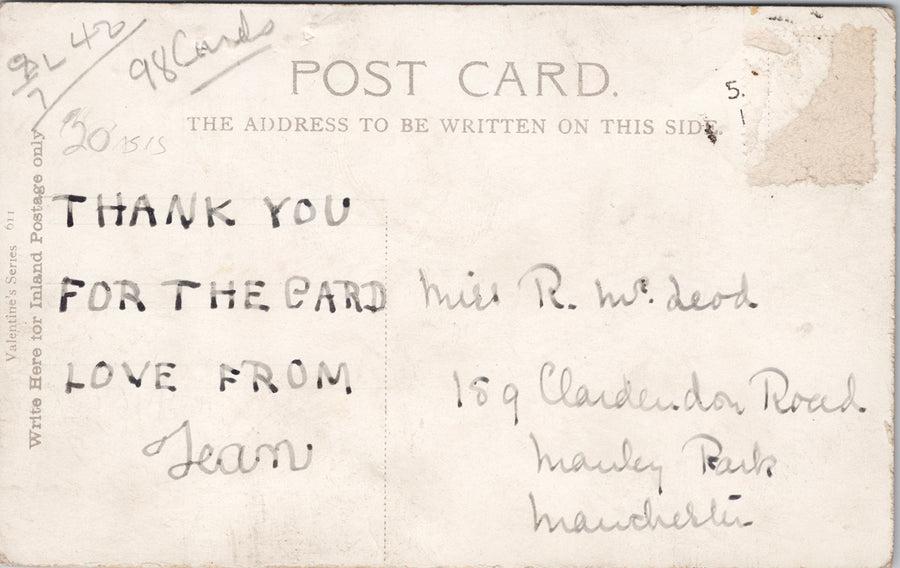 98 Cards
POST CARD.
THE ADDRESS TO BE WRITTEN ON THIS SIDE.
5.
Valentine's Series 611
Write Here for Inland Postage only
THANK YOU
FOR THE CARD
LOVE FROM
Jean
Miss R. McLeod
189 Clardendon Road
Manley Park
Manchester